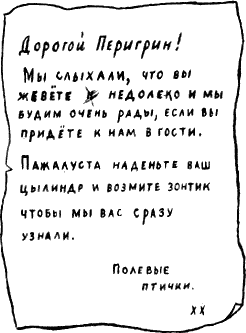 Дорогой Перигрин!
Мы слыхали, что вы
жевёте недолеко и мы
будим очень рады, если вы
придёте к нам в гости.
Пажалуста наденьте ваш
цылиндр и возмите зонтик
чтобы мы вас сразу
узнали.
Полевые
птички.
XX